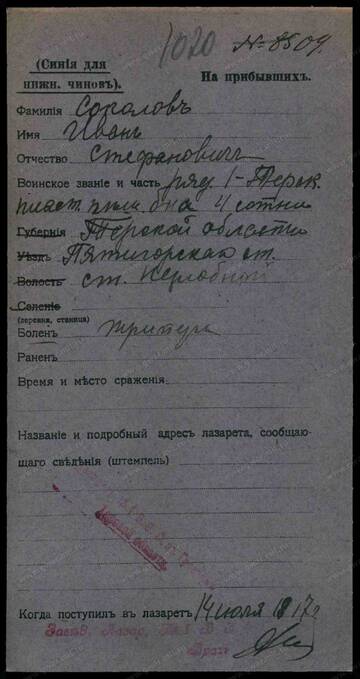 1020 № 8509.
(Синія для
нижн. чиновъ).
На прибывшихъ.
Фамилія Соколовъ
Имя Иванъ
Отчество Стефановичъ
Воинское званіе и часть ряд 1-Терск
пласт. бна 4 сотни
Губернія Терской области
Уѣздъ Пятигорская от.
Волость ст. Незлобной
Селеніе
(деревня, станица)
Боленъ
Раненъ
Время и мѣсто сраженія
Названіе и подробный адресъ лазарета, сообщаю-
щаго свѣдѣнія (штемпель)
Когда поступилъ въ лазаретъ 14 июля 1917 г
Завѣд. Лазар. № 1
Врачъ